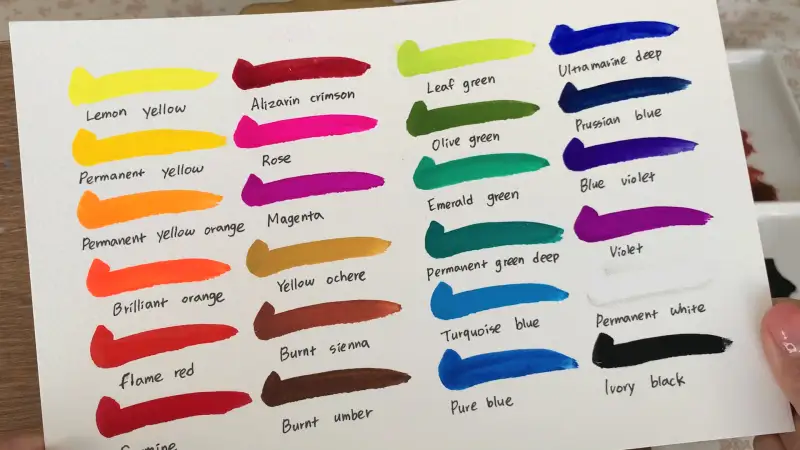 Lemon yellow
Permanent yellow
Permanent yellow orange
Brilliant orange
Flame red
Alizarin crimson
Rose
Magenta
Yellow ochere
Burnt sienna
Burnt umber
Leaf green
Olive green
Emerald green
Permanent green deep
Turquoise blue
Pure blue
Ultramarine deep
Prussian blue
Blue violet
Violet
Permanent white
Ivory black